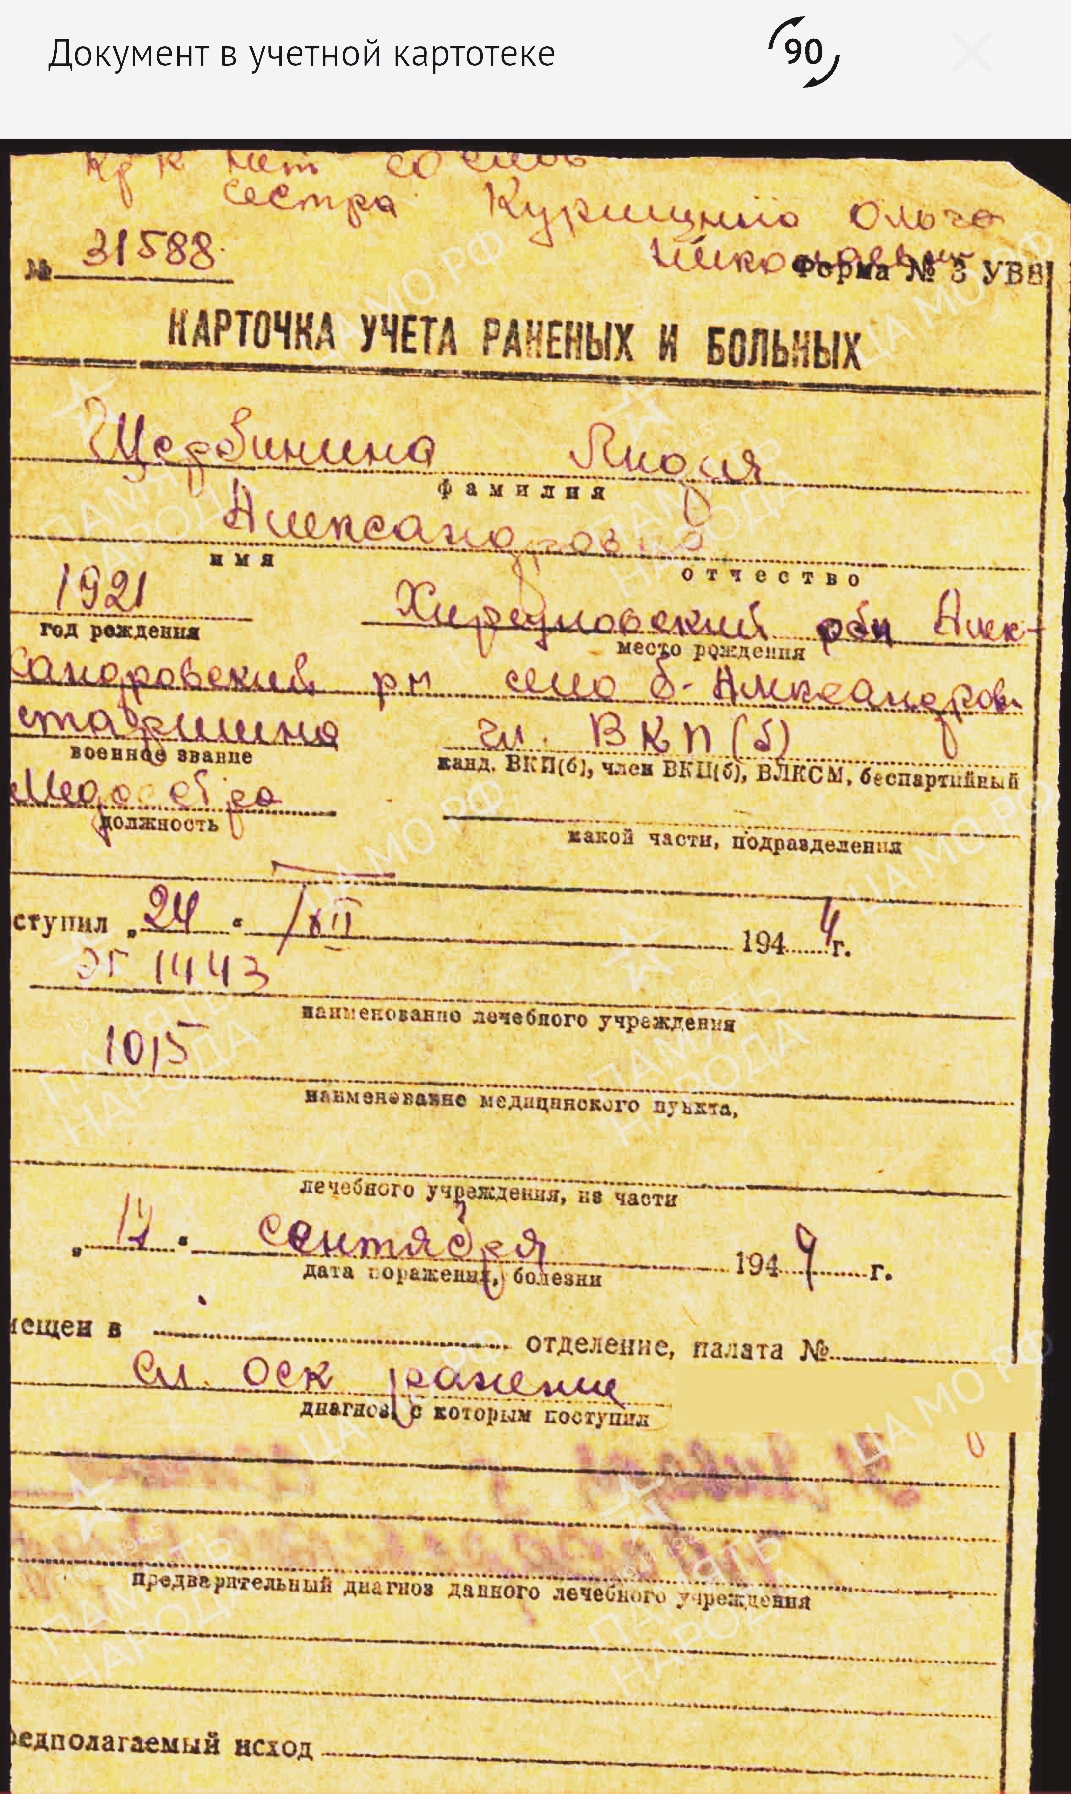 Документ в учетной картотеке
90
Кр к нет со слов
сестра Ольга
№ 31588.
Форма № 3 УВВ
КАРТОЧКА УЧЕТА РАНЕНЫХ И БОЛЬНЫХ
Щербинина Лидия
фамилия
Александровна
имя
отчество
1921
год рождения
место рождения
сандровский рн село б-Александров
старшина
чл. ВКП(б)
военное звание
канд. ВКП(б), член ВКП(б), ВЛКСМ, беспартийный
Медсестра
должность
какой части, подразделения
ступил „24" /XII 1944г.
ЭГ 1443
наименование лечебного учреждения
1015
наименование медицинского пункта,
лечебного учреждения, из части
сентября 1944 г.
дата поражения, болезни
мещен в отделение, палата №
сл. оск ранение
диагноз, с которым поступил
предварительный диагноз данного лечебного учреждения
редполагаемый исход
ПАМЯТЬ НАРОДА
ЦА МО РФ